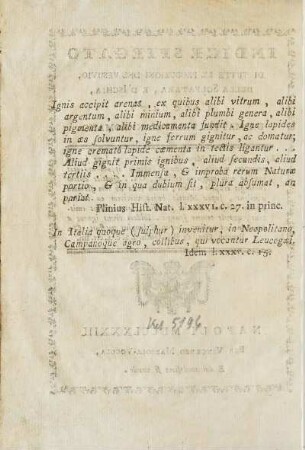 Ignis accipit arenas, ex quibus alibi vitrum, alibi
argentum, alibi minium, alibi plumbi genera, alibi
pigmenta, alibi medicamenta fundit. Igne lapides
in æs solvuntur, igne ferrum gignitur, ac domatur;
igne cremato lapide cæmenta in tectis ligantur. . .
Aliud gignit primis ignibus, aliud secundis, aliud
tertiis . . . . Immensa, & improba rerum Naturæ
portio, & in qua dubium sit, plura absumat, an
pariat.
Plinius Hist. Nat. l. xxxvi. c. 27. in princ.
In Italia quoque (sulphur) invenitur, in Neopolitano,
Campanoque agro, collibus, qui vocantur Leucogæi.
Idem l. xxxv. c. 15.